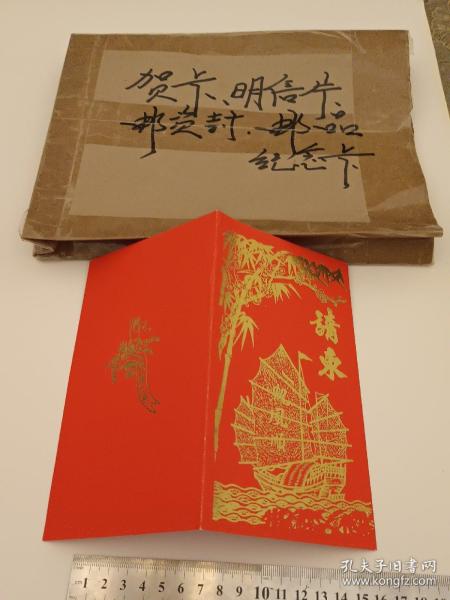 贺卡、明信片、
邮资封、邮品
纪念卡
請柬
一帆风顺
cm 1 2 3 4 5 6 7 8 9 10 11 12 13 14 15 16 17 18
孔夫子旧书网
www.kongfz.com